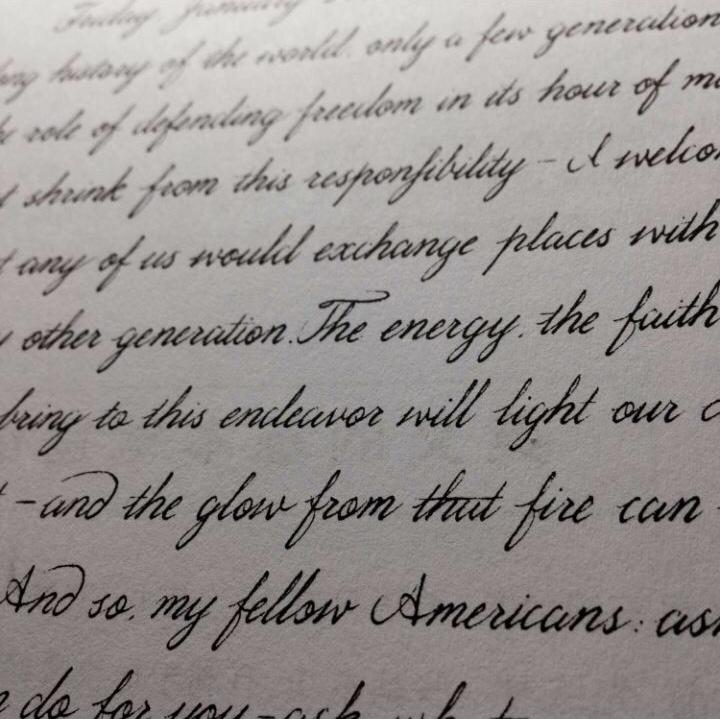 Friday, January
history of the world, only a few generation
role of defending freedom in its hour of
shrink from this responsibility - I welco
any of us would exchange places with
other generation. The energy, the faith
bring to this endeavor will light our
- and the glow from that fire can
And so, my fellow Americans: as
do for you - ask what